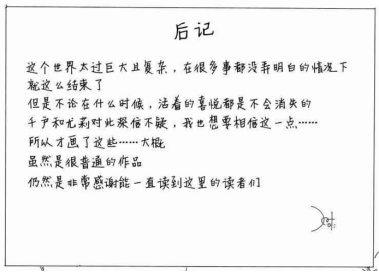 后记
这个世界太过巨大且复杂，在很多事都没弄明白的情况下
就这么结束了
但是不论在什么时候，活着的喜悦都是不会消失的
千户和尤莉对此深信不疑，我也想要相信这一点……
所以才画了这些……大概
虽然是很普通的作品
仍然是非常感谢能一直读到这里的读者们